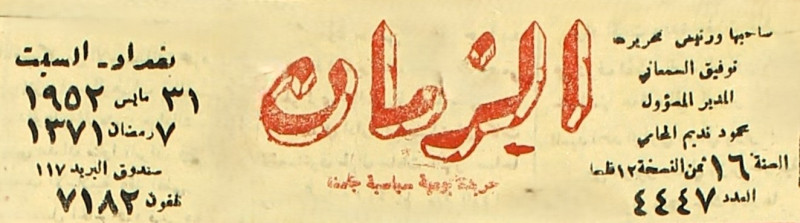 صاحبها ورئيس تحريرها
توفيق السمعاني
المدير المسؤول
محمود نديم المحامي
السنة ١٦ ثمن النسخة ١٢ فلسا
العدد ٤٤٤٧
الزمان
جريدة يومية سياسية جامعة
بغداد - السبت
٣١ مايس ١٩٥٢
٧ رمضان ١٣٧١
صندوق البريد ١١٧
تلفون ٧١٨٢